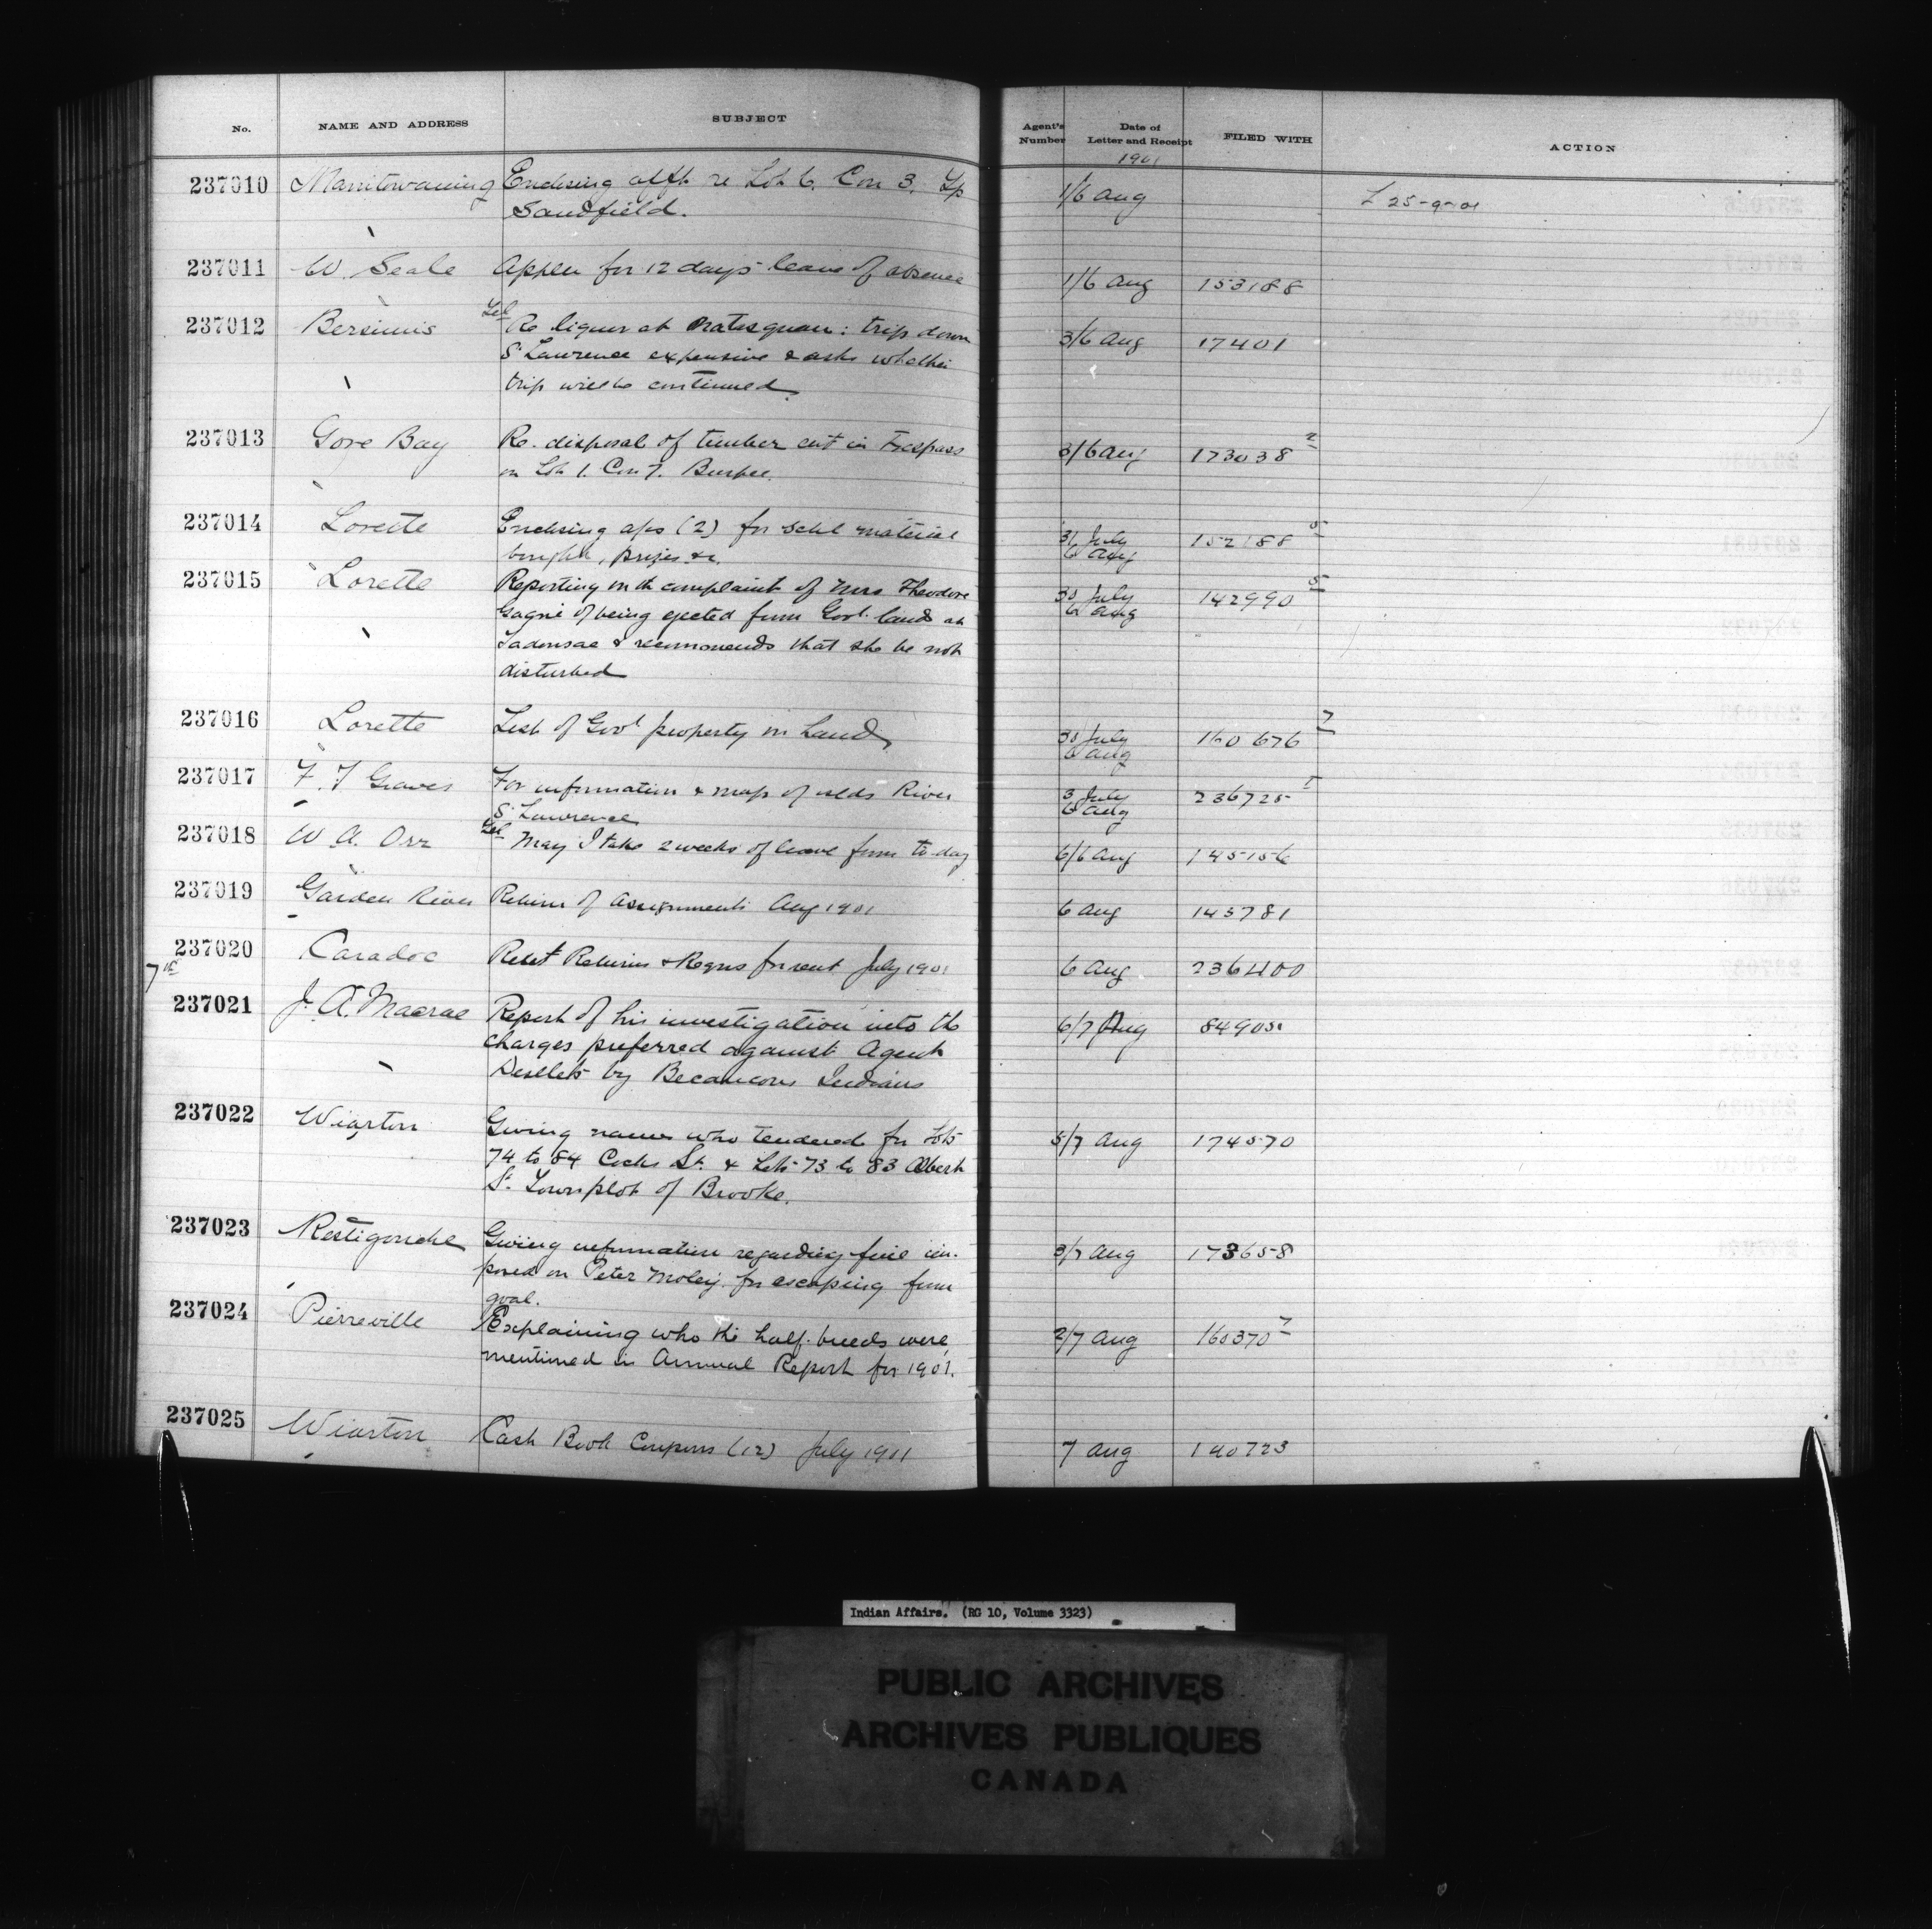 No. NAME AND ADDRESS SUBJECT Agent's Number Date of Letter and Receipt FILED WITH ACTION
1901
237010 Manitowaning Enclosing afft re Lot 6. Con 3. Tp 1/6 Aug L 25-9-01
Sandfield.
237011 W. Seale Appln for 12 days leave of absence 1/6 Aug 153188
237012 Bersimis Tel Re liquor at Natasquan: trip down 3/6 Aug 17401
St Lawrence expensive & asks whether
trip will be continued
237013 Gore Bay Re. disposal of timber cut in Trespass 3/6 Aug 173038 2
on Lot 1. Con 7. Burpee.
237014 Lorette Enclosing a/cs (2) for Schl material 31 July 152188 5
bought, prizes &c. 6 Aug
237015 Lorette Reporting on the complaint of Mrs Theodore 30 July 142990 5
Gagné of being ejected from Govt. lands at 6 Aug
Tadousac & recommends that she be not
disturbed
237016 Lorette List of Govt property on hand 30 July 160676 7
6 Aug
237017 F. F Graves For information & map of islds River 3 July 236725 1
St Lawrence 6 Aug
237018 W. A. Orr Tel May I take 2 weeks of leave from to-day 6/6 Aug 145156
237019 Garden River Return of Assignments Aug 1901 6 Aug 145781
237020 Caradoc Relief Returns & Reqns for sent July 1901 6 Aug 236400
7th
237021 J. A. Macrae Report of his investigation into the 6/7 Aug 84905
charges preferred against Agent
Desilets by Becancour Indians
237022 Wiarton Giving names who tendered for Lots 5/7 Aug 174570
74 to 84 Cocks St. & Lots 73 to 83 Albert
St. Townplot of Brooke.
237023 Restigouche Giving information regarding fine im- 3/7 Aug 173658
posed on Peter Moley for escaping from
goal.
237024 Pierreville Explaining who the half-breeds were 2/7 Aug 160370 7
mentioned in Annual Report for 1901.
237025 Wiarton Cash Book Coupons (12) July 1901 7 Aug 140723
Indian Affairs. (RG 10, Volume 3323)
PUBLIC ARCHIVES
ARCHIVES PUBLIQUES
CANADA